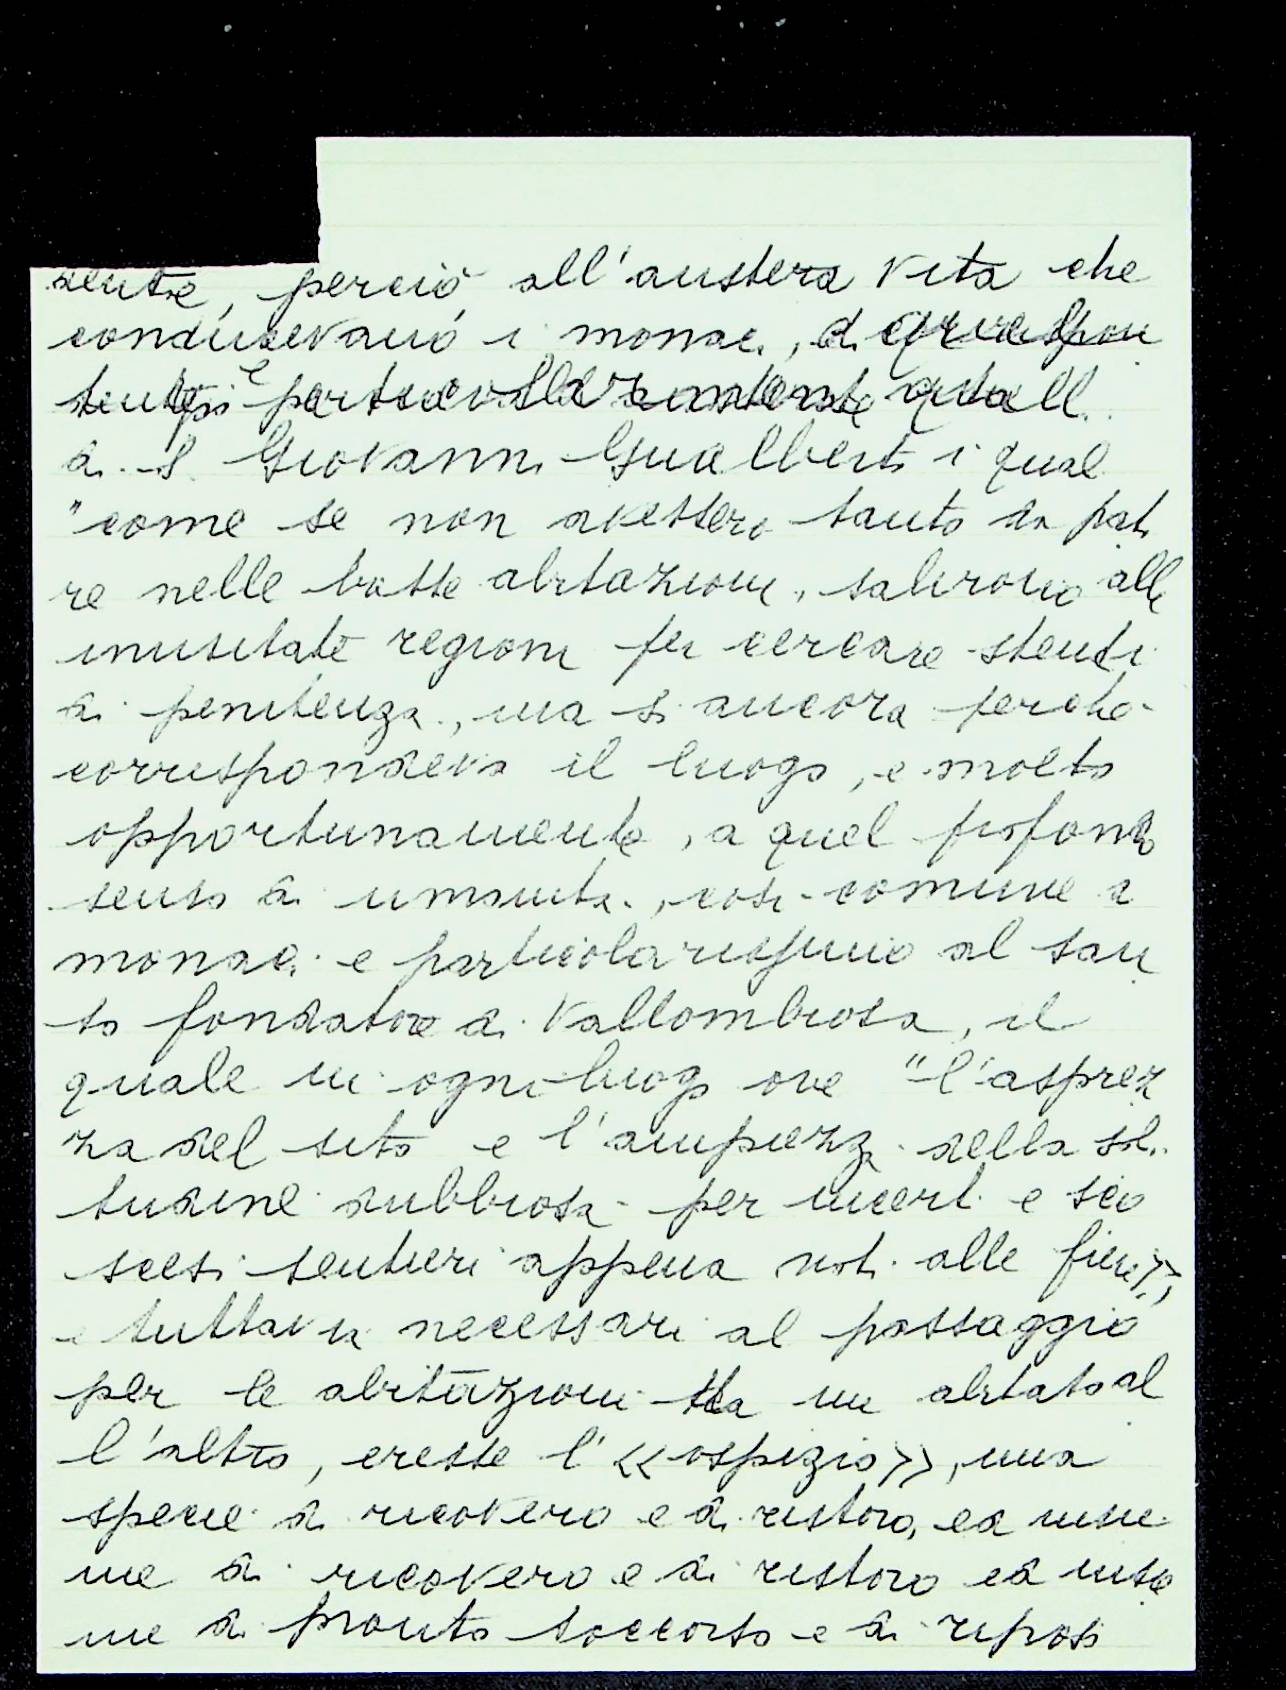 sentire, perciò all'austera vita che
conducevano i monaci, di
tempi e particolarmente quelli
di S. Giovanni Gualberto i quali
"come se non avessero tanto da pati
re nelle basse abitazioni, salirono alle
inusitate regioni per cercare stenti
di penitenza, ma si ancora perché
corrispondeva il luogo, e molto
opportunamente, a quel profondo
senso di umanità, così comune a
monaci e particolarissimo al san
to fondatore di Vallombrosa, il
quale in ogni luogo ove "l'asprez
za del sito e l'ampiezza della soli
tudine dubbiosa per incerti e sco
scesi sentieri appena noti alle fiere>>,
e tuttavia necessari al passaggio
per le abitazioni da un abitato al
l'altro, eresse l'<<ospizio>>, una
specie di ricovero e di ristoro, ed insie
me di ricovero e di ristoro ed insie
me di pronto soccorso e di riposo